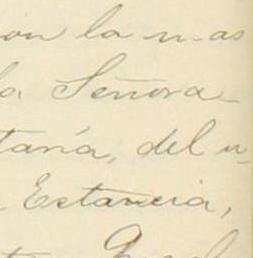 on la mas
la Señora
taría, del u
Estancia,